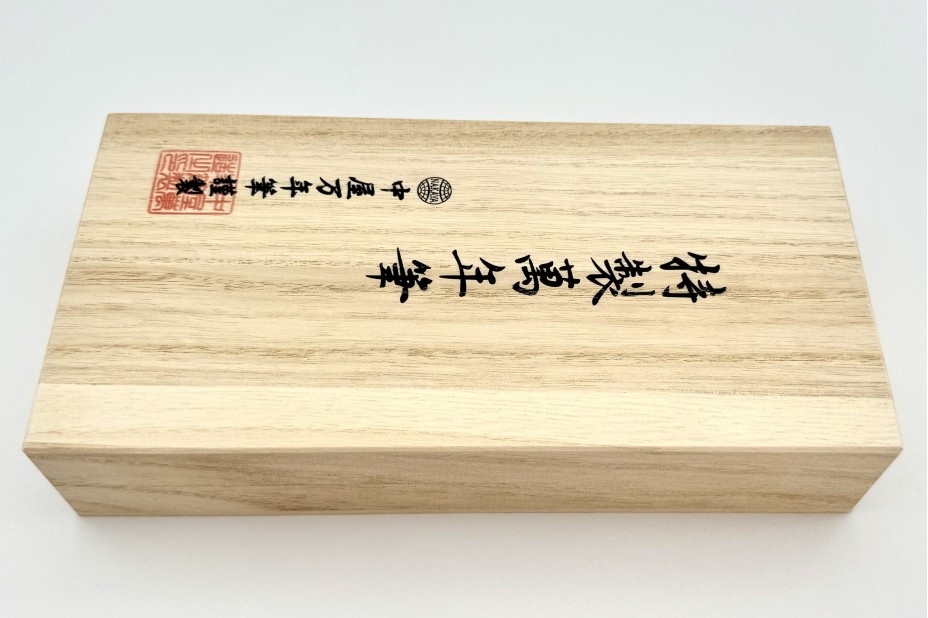 特製萬年筆
NAKAYA
中屋万年筆
謹製